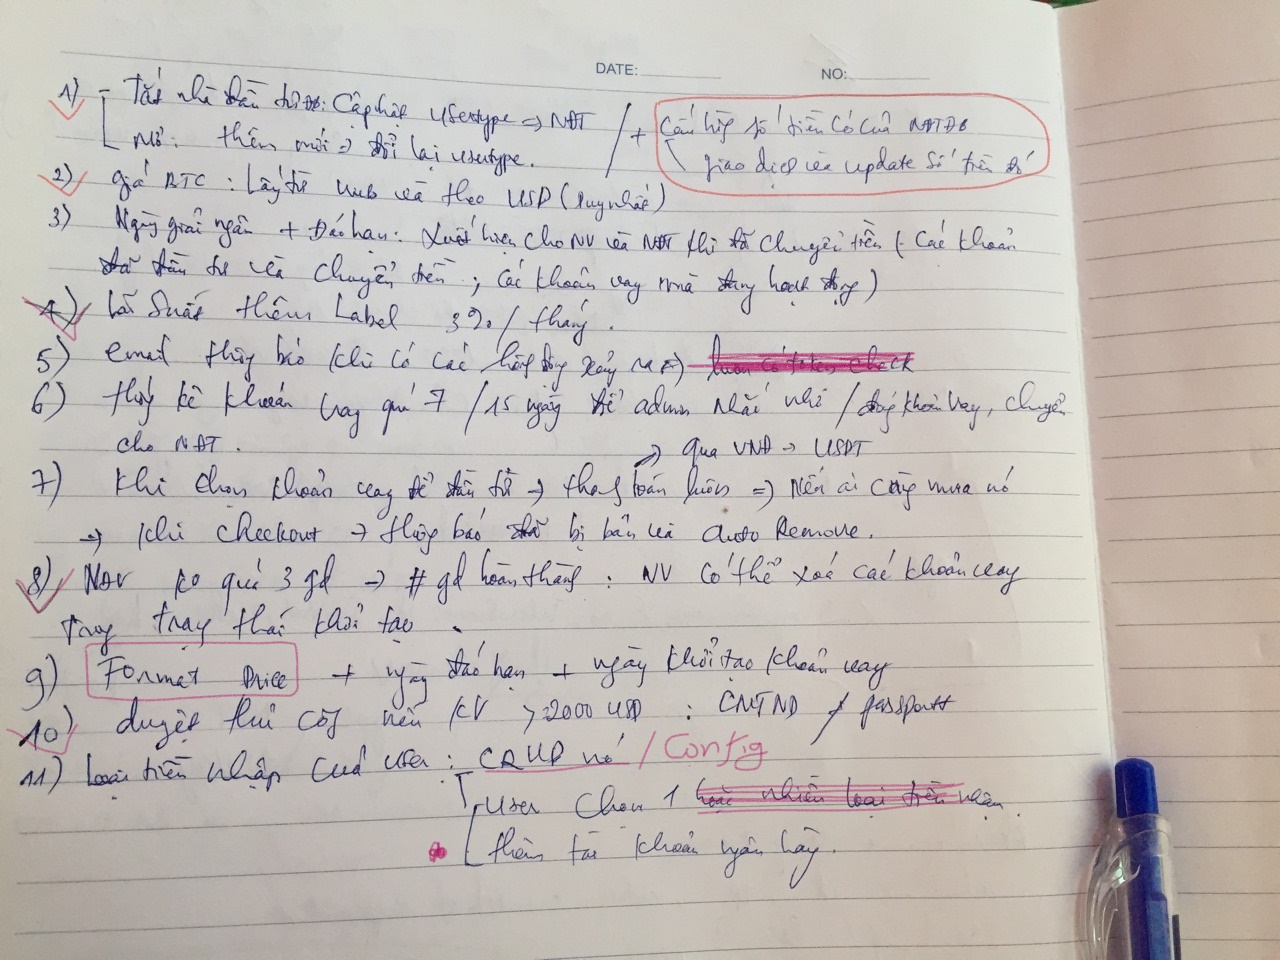 DATE: NO:
1) - Tắt nhà đầu tư ĐB: Cập nhật usertype => NĐT / + Cấu hình số tiền có của NĐTĐB
Mở: thêm mới => đổi lại usertype. giao dịch và update số tiền đó
2) giá BTC: Lấy từ web và theo USD (duy nhất)
3) Ngày giải ngân + Đáo hạn: Xuất hiện cho NV và NĐT khi đã chuyển tiền (- Các khoản
đã đầu tư và chuyển tiền; các khoản vay mà đang hoạt động)
4) Lãi suất thêm Label 3%/tháng.
5) email thông báo khi có các hành động xảy ra luôn có token check
6) thống kê khoản vay quá 7/15 ngày để admin nhắc nhở / đóng khoản vay, chuyển
cho NĐT. => qua VNĐ -> USDT
7) Khi chọn khoản vay để đầu tư -> thanh toán luôn => Nếu ai cũng mua nó
-> khi checkout -> thông báo đã bị bán và auto Remove.
8) NĐV ko quá 3 gd -> # gd hoàn thành: NV có thể xoá các khoản vay
trong trạng thái khởi tạo.
9) Format Price + ngày đáo hạn + ngày khởi tạo khoản vay
10) duyệt thủ công nếu KV >2000 USD: CMTND / passport
11) Loại tiền nhập của user: CRUD nó / Config
user chọn 1 hoặc nhiều loại tiền nhận.
thêm tài khoản ngân hàng.